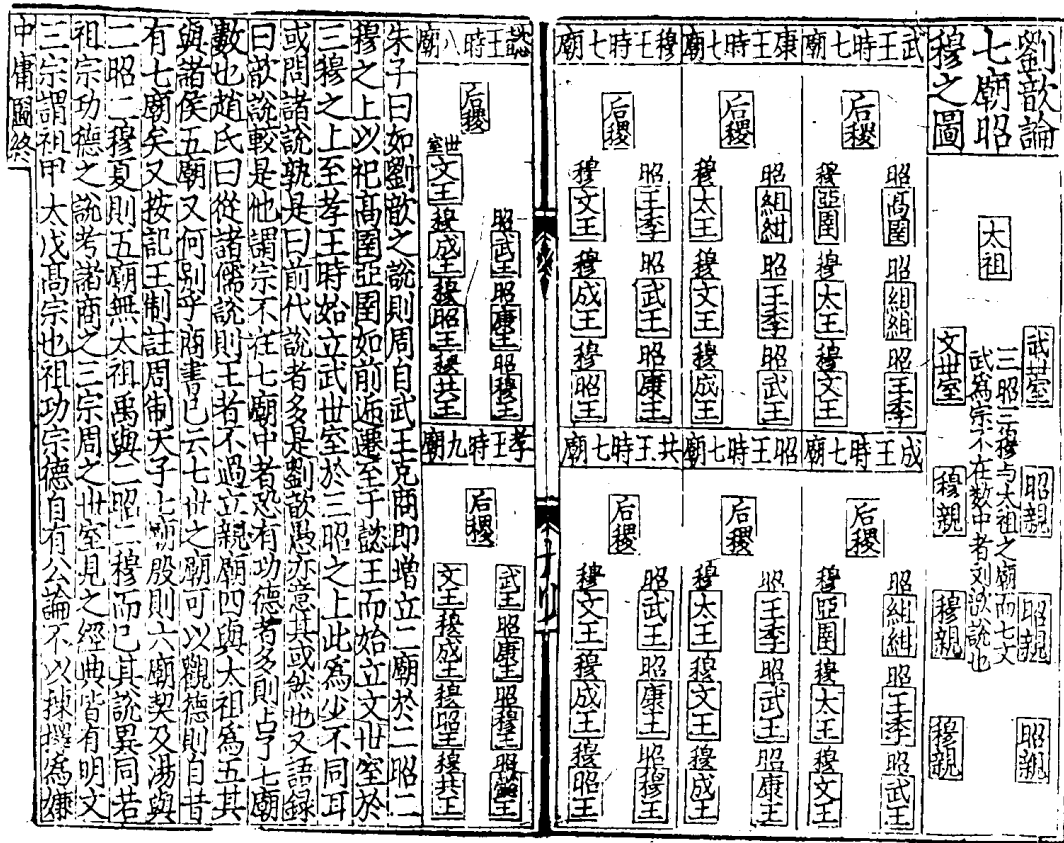 劉歆論
七廟昭
穆之圖
太祖
武世室
昭親
昭親
昭親
三昭三穆与太祖之廟而七文
武為宗不在数中者刘歆說也
文世室
穆親
穆親
穆親
武王時七廟
后稷
昭高圉 昭組紺 昭王季
穆亞圉 穆太王 穆文王
康王時七廟
后稷
昭組紺 昭王季 昭武王
穆太王 穆文王 穆成王
穆王時七廟
后稷
昭王季 昭武王 昭康王
穆文王 穆成王 穆昭王
成王時七廟
后稷
昭組紺 昭王季 昭武王
穆亞圉 穆太王 穆文王
昭王時七廟
后稷
昭王季 昭武王 昭康王
穆太王 穆文王 穆成王
共王時七廟
后稷
昭武王 昭康王 昭穆王
穆文王 穆成王 穆昭王
懿王時八廟
后稷
昭武王 昭康王 昭穆王
世室文王 穆成王 穆昭王 穆共王
孝王時九廟
后稷
武王 昭康王 昭穆王 昭懿王
文王 穆成王 穆昭王 穆共王
朱子曰如劉歆之說則周自武王克商即增立二廟於二昭二
穆之上以祀高圉亞圉如前遞遷至于懿王而始立文世室於
三穆之上至孝王時始立武世室於三昭之上此為少不同耳
或問諸說孰是曰前代說者多是劉歆愚亦意其或然也又語録
曰歆說較是他謂宗不在七廟中者恐有功德者多則占了七廟
數也趙氏曰從諸儒說則王者不過立親廟四與太祖為五其
與諸侯五廟又何别乎商書已云七世之廟可以觀德則自昔
有七廟矣又按記王制註周制天子七廟殷則六廟契及湯與
二昭二穆夏則五廟無太祖禹與二昭二穆而已其說異同若
祖宗功德之說考諸商之三宗周之世室見之經典皆有明文
三宗謂祖甲太戊高宗也祖功宗德自有公論不以揀擇為嫌
中庸圖終